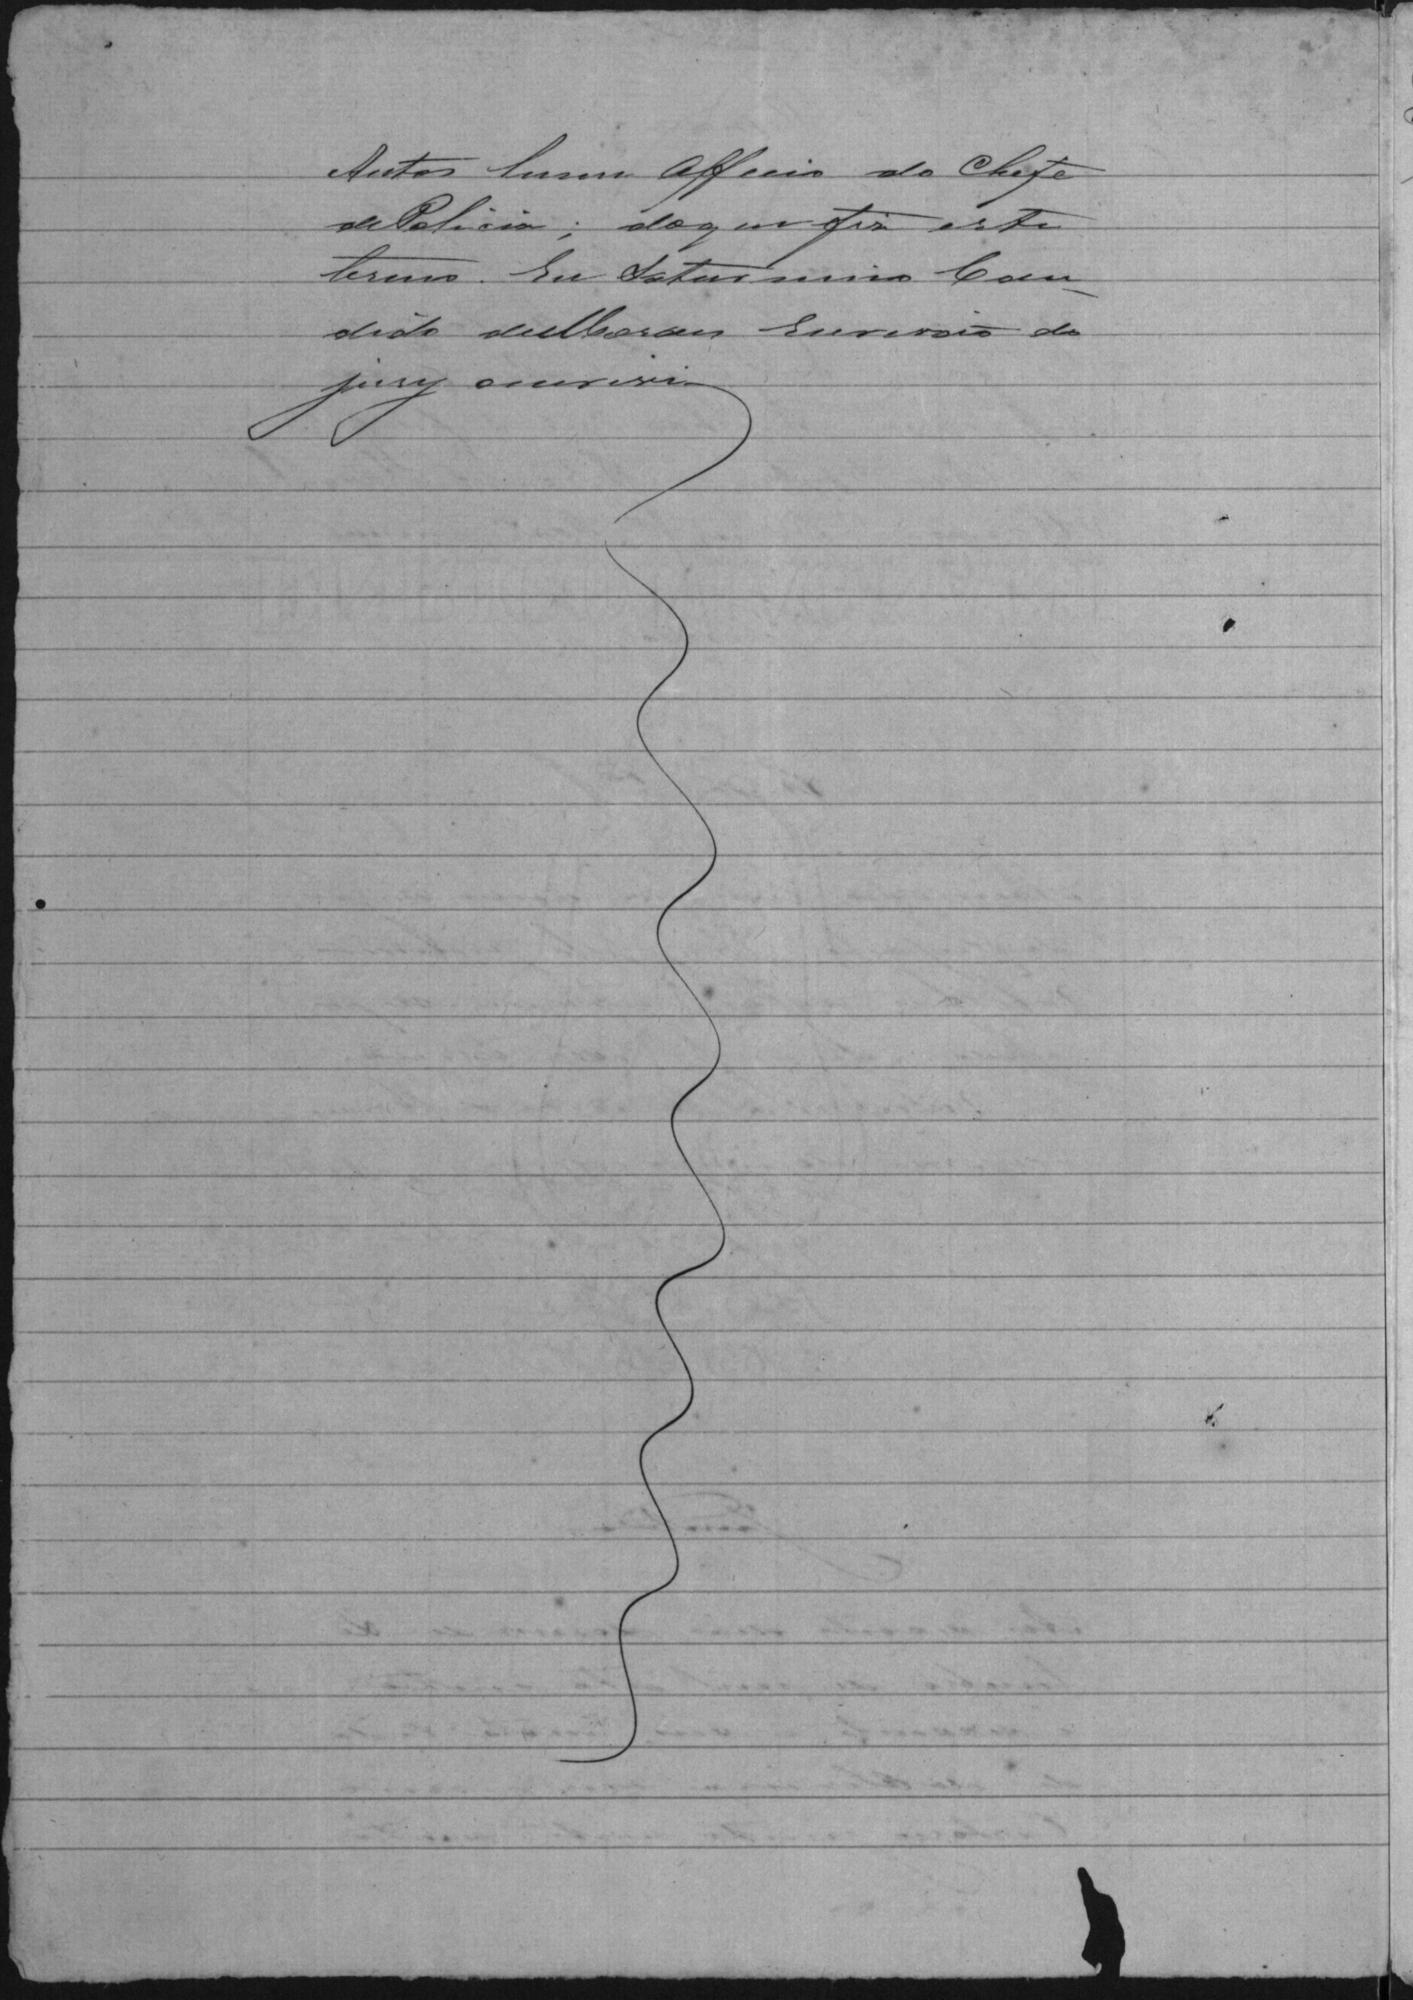 Autos hum Officio do Chefe
de Policia; do que fiz este
termo. Eu Saturnino Can-
dido de Moraes Escrivão do
jury escrevi